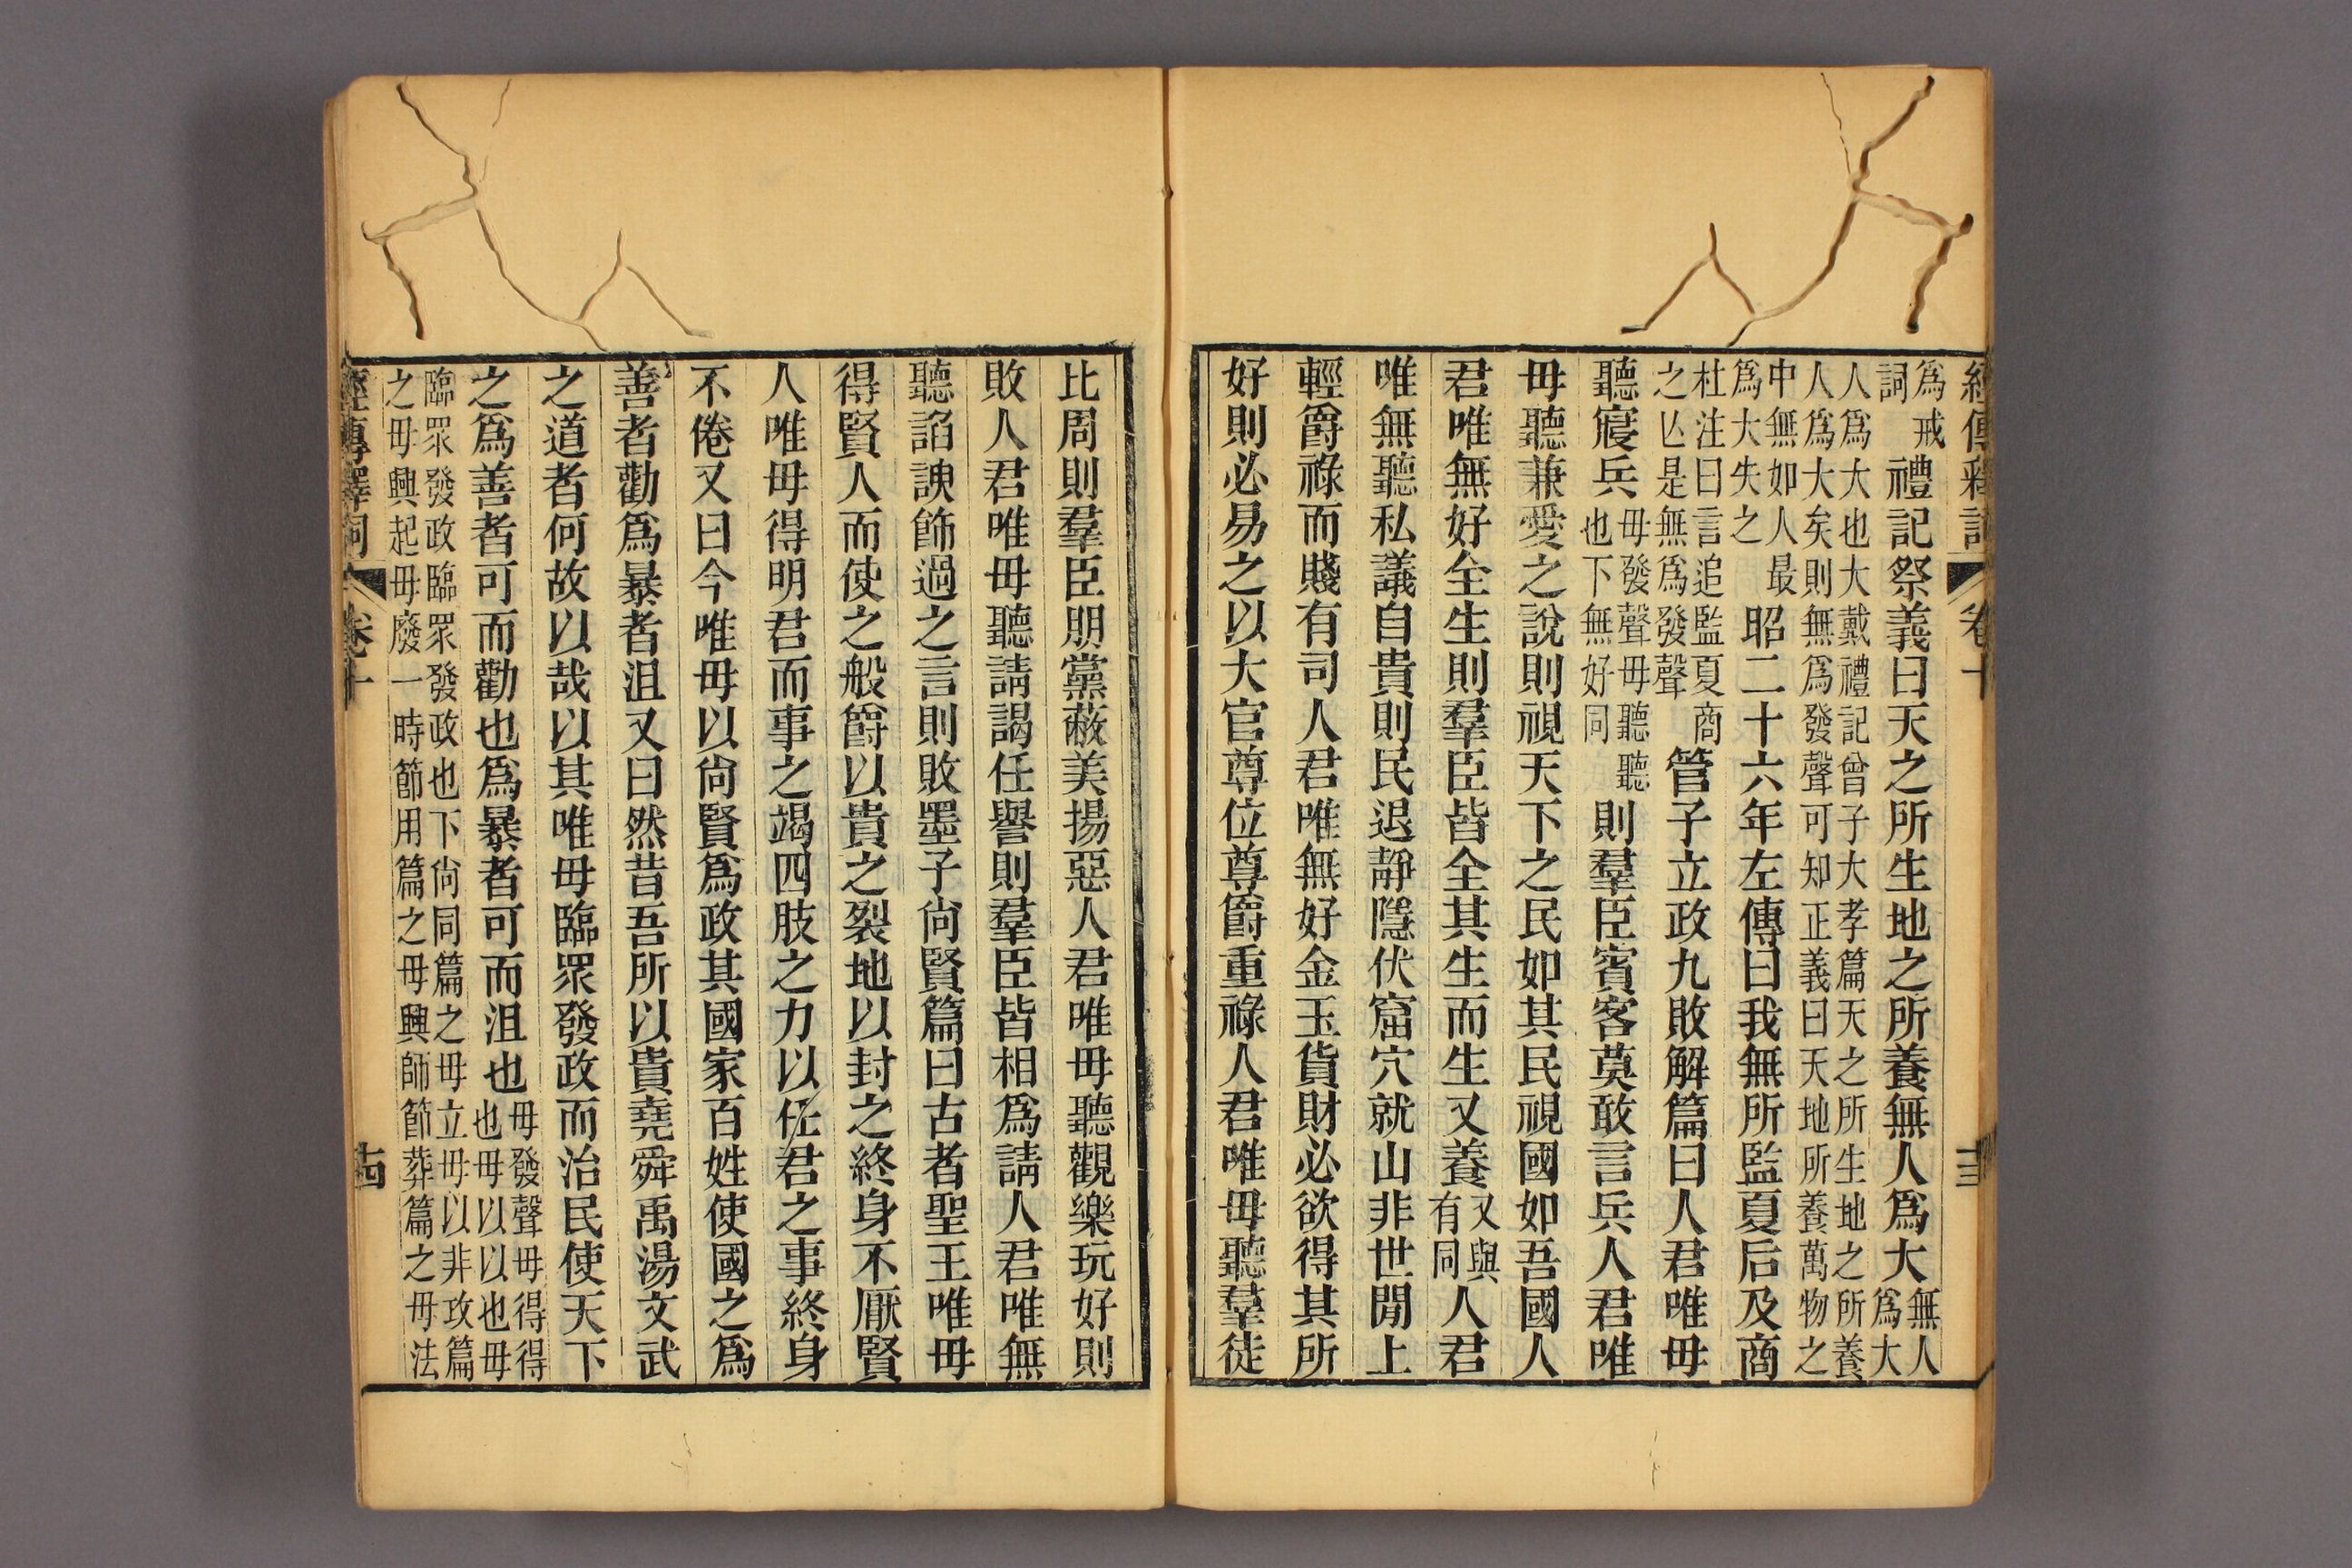 經傳釋詞 卷十 十三
爲戒詞禮記祭義曰天之所生地之所養無人爲大無人爲大
人爲大也大戴禮記曾子大孝篇天之所生地之所養
人爲大矣則無爲發聲可知正義曰天地所養萬物之
中無如人最爲大失之昭二十六年左傳曰我無所監夏后及商
杜注曰言追監夏商之亾是無爲發聲管子立政九敗解篇曰人君唯毋
聽寑兵毋發聲毋聽聽也下無好同則羣臣賓客莫敢言兵人君唯
毋聽兼愛之說則視天下之民如其民視國如吾國人
君唯無好全生則羣臣皆全其生而生又養又與有同人君
唯無聽私議自貴則民退靜隱伏窟穴就山非世閒上
輕爵祿而賤有司人君唯無好金玉貨財必欲得其所
好則必易之以大官尊位尊爵重祿人君唯毋聽羣徒
比周則羣臣朋黨蔽美揚惡人君唯毋聽觀樂玩好則
敗人君唯毋聽請謁任譽則羣臣皆相爲請人君唯無
聽諂諛飾過之言則敗墨子尙賢篇曰古者聖王唯毋
得賢人而使之般爵以貴之裂地以封之終身不厭賢
人唯毋得明君而事之竭四肢之力以任君之事終身
不倦又曰今唯毋以尙賢爲政其國家百姓使國之爲
善者勸爲暴者沮又曰然昔吾所以貴堯舜禹湯文武
之道者何故以哉以其唯毋臨眾發政而治民使天下
之爲善者可而勸也爲暴者可而沮也毋發聲毋得得也毋以以也毋
臨眾發政臨眾發政也下尙同篇之毋立毋以非攻篇
之毋興起毋廢一時節用篇之毋興師節葬篇之毋法
經傳釋詞 卷十 十四